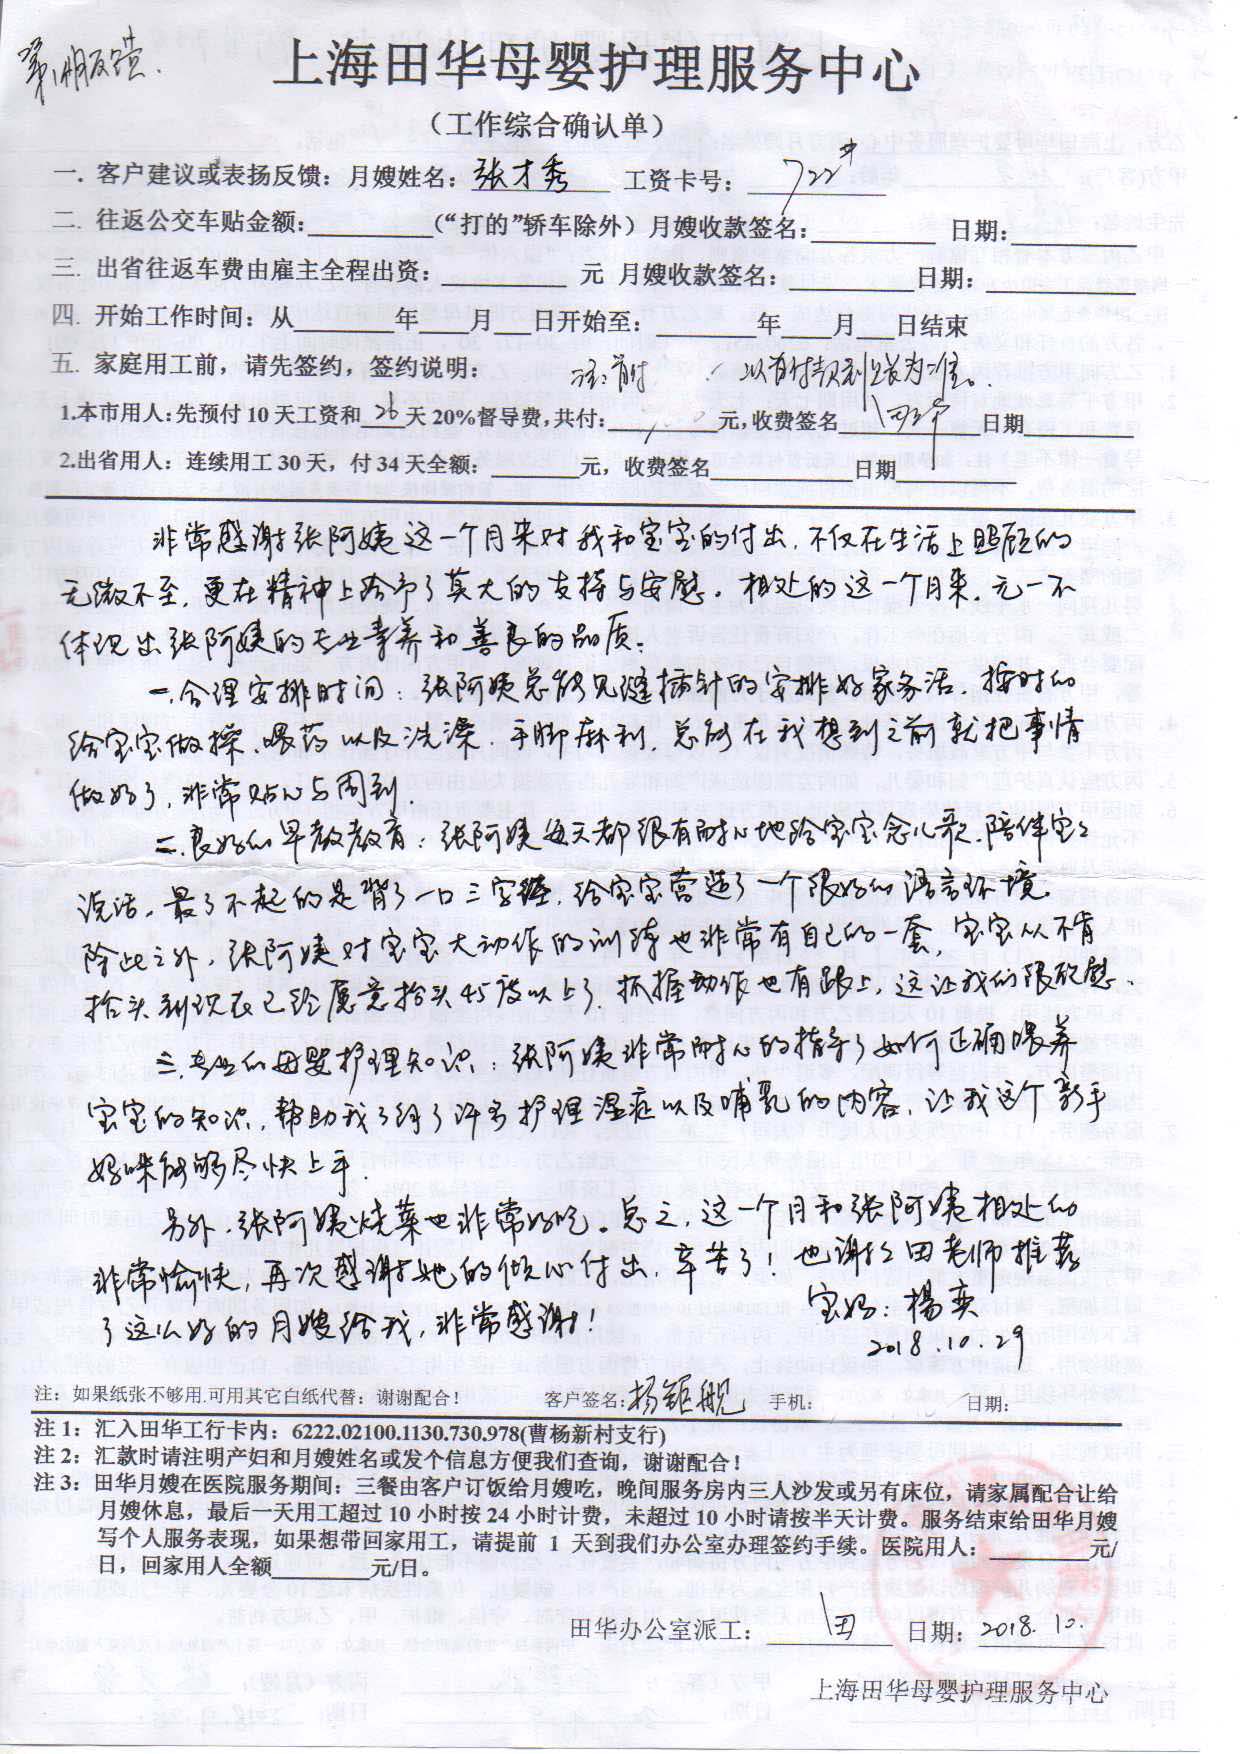 第1册反馈.
上海田华母婴护理服务中心
（工作综合确认单）
一. 客户建议或表扬反馈：月嫂姓名：张才秀 工资卡号：722#
二. 往返公交车贴金额：（“打的”轿车除外）月嫂收款签名： 日期：
三. 出省往返车费由雇主全程出资： 元 月嫂收款签名： 日期：
四. 开始工作时间：从 年 月 日开始至： 年 月 日结束
五. 家庭用工前，请先签约，签约说明： 注：
1.本市用人：先预付10天工资和26天20%督导费，共付： 元，收费签名 田 日期
2.出省用人：连续用工30天，付34天全额： 元，收费签名 日期
非常感谢张阿姨这一个月来对我和宝宝的付出，不仅在生活上照顾的
无微不至，更在精神上给予了莫大的支持与安慰。相处的这一个月来，无一不
体现出张阿姨的专业素养和善良的品质：
一.合理安排时间：张阿姨总能见缝插针的安排好家务活，按时的
给宝宝做操、喂药以及洗澡，手脚麻利，总能在我想到之前就把事情
做好了，非常贴心与周到.
二.良好的早教教育：张阿姨每天都很有耐心地给宝宝念儿歌、陪伴宝宝
说话，最了不起的是背了一口三字经，给宝宝营造了一个很好的语言环境.
除此之外，张阿姨对宝宝大动作的训练也非常有自己的一套，宝宝从不肯
抬头到现在已经愿意抬头45度以上了，抓握动作也有跟上，这让我们很欣慰.
三.专业的母婴护理知识：张阿姨非常耐心的指导了如何正确喂养
宝宝的知识，帮助我了解了许多护理湿疹以及哺乳的内容，让我这个新手
妈咪能够尽快上手.
另外，张阿姨烧菜也非常好吃，总之，这一个月和张阿姨相处的
非常愉快，再次感谢她的倾心付出，辛苦了！也谢谢田老师推荐
了这么好的月嫂给我，非常感谢！
宝妈：杨奕
2018.10.29
注：如果纸张不够用.可用其它白纸代替：谢谢配合！ 客户签名：杨钜舰 手机： 日期：
注1：汇入田华工行卡内：6222.02100.1130.730.978(曹杨新村支行)
注2：汇款时请注明产妇和月嫂姓名或发个信息方便我们查询，谢谢配合！
注3：田华月嫂在医院服务期间：三餐由客户订饭给月嫂吃，晚间服务房内三人沙发或另有床位，请家属配合让给
月嫂休息，最后一天用工超过10小时按24小时计费，未超过10小时请按半天计费。服务结束给田华月嫂
写个人服务表现，如果想带回家用工，请提前 1 天到我们办公室办理签约手续。医院用人： 元/
日，回家用人全额 元/日。
田华办公室派工： 田 日期：2018.10.
上海田华母婴护理服务中心